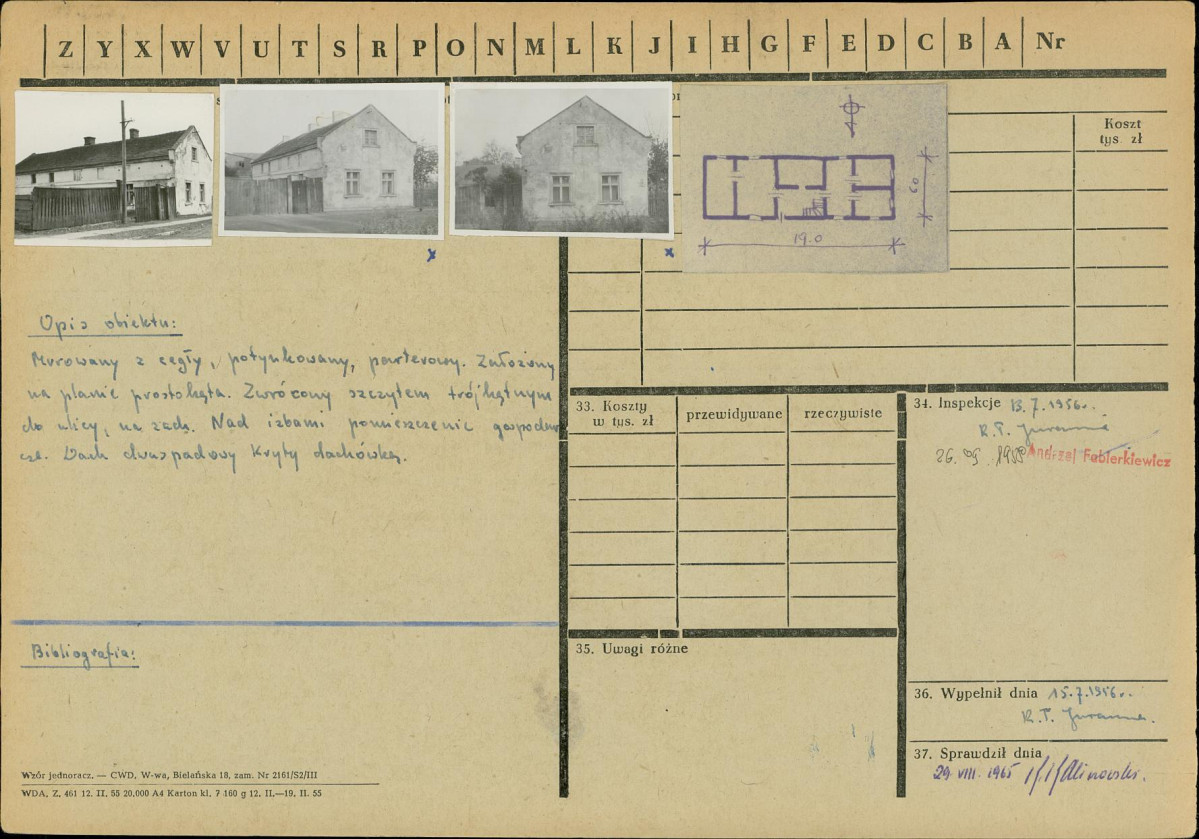 Z Y X W V U T S R P O N M L K J I H G F E D C B A Nr
Koszt
tys. zł
60
19.0
x x
Opis obiektu:
Murowany z cegły, potynkowany, parterowy. Założony
na planie prostokąta. Zwrócony szczytem trójkątnym
do ulicy, na zach. Nad izbami pomieszczenie gospodar
cze. Dach dwuspadowy kryty dachówką.
Bibliografia:
33. Koszty
w tys. zł
przewidywane
rzeczywiste
34. Inspekcje 13.7.1956r.
K.P.
26. 09. Andrzej Fabierkiewicz
35. Uwagi różne
36. Wypełnił dnia 15.7.1956r.
K.P.
37. Sprawdził dnia
29 VIII. 1965
Wzór jednoracz. — CWD, W-wa, Bielańska 18, zam. Nr 2161/S2/III
WDA. Z. 461 12. II. 55 20.000 A4 Karton kl. 7 160 g 12. II.—19. II. 55